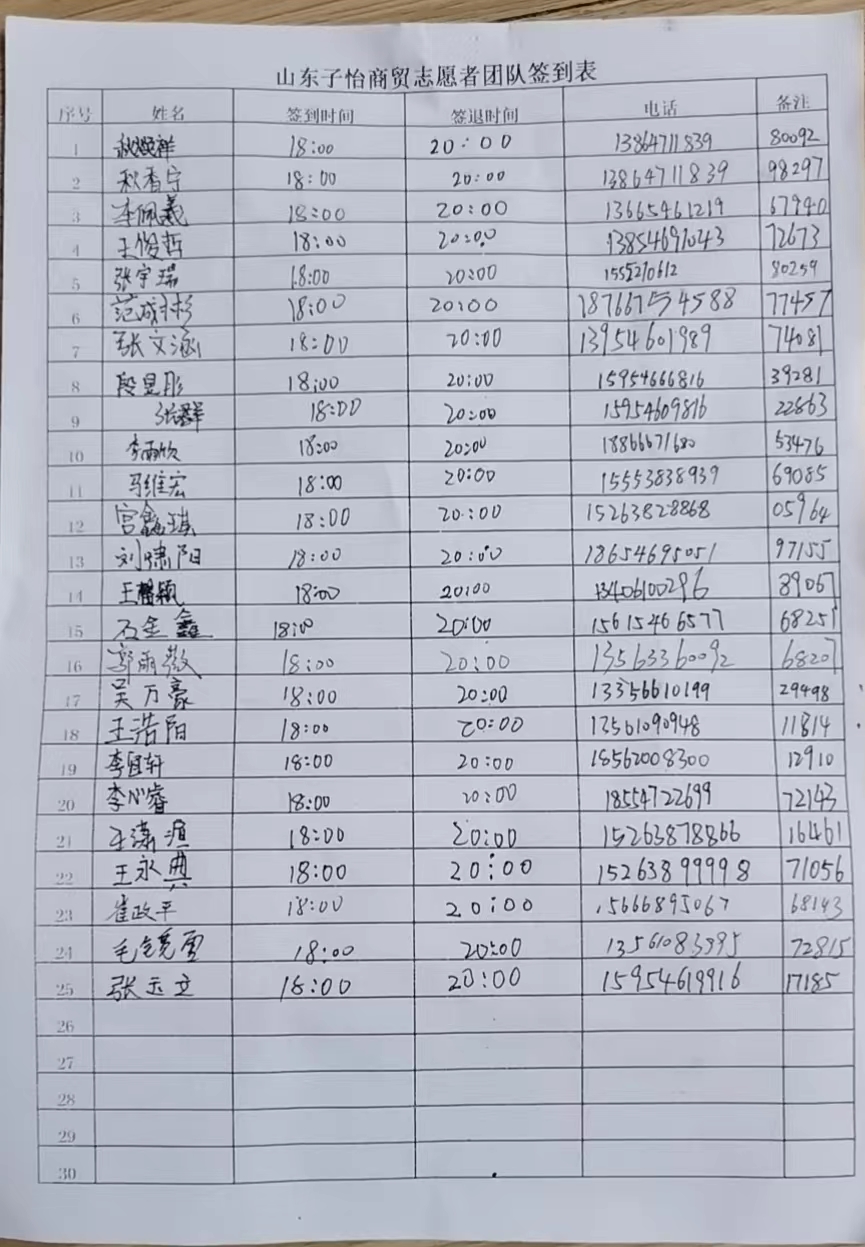 山东子怡商贸志愿者团队签到表
序号 姓名 签到时间 签退时间 电话 备注
1 秋焕祥 18:00 20:00 13864711839 80092
2 秋香宁 18:00 20:00 13864711839 98297
3 李佩羲 18:00 20:00 13665461219 67940
4 王俊哲 18:00 20:00 13854691043 72673
5 张宇瑞 18:00 20:00 1555210612 80259
6 范成杉 18:00 20:00 18766754588 77457
7 张文涵 18:00 20:00 13954601989 74081
8 段昱彤 18:00 20:00 15954666816 39281
9 张群 18:00 20:00 15954609816 22863
10 李雨欣 18:00 20:00 18866671680 53476
11 马维宏 18:00 20:00 15553838939 69085
12 宫鑫琪 18:00 20:00 15263828868 05964
13 刘啸阳 18:00 20:00 18654695051 97155
14 王馨颖 18:00 20:00 13406100296 89067
15 石金鑫 18:00 20:00 15615466577 68251
16 郭雨薇 18:00 20:00 13563360092 68207
17 吴万豪 18:00 20:00 13356610199 29498
18 王浩阳 18:00 20:00 13561090948 11814
19 李宜轩 18:00 20:00 18562008300 12910
20 李心睿 18:00 20:00 18554722699 72143
21 王潇 18:00 20:00 15263878866 16461
22 王永典 18:00 20:00 15263899998 71056
23 崔政平 18:00 20:00 15666895067 68143
24 18:00 20:00 13561083995 72815
25 张玉立 18:00 20:00 15954619916 17185
26
27
28
29
30